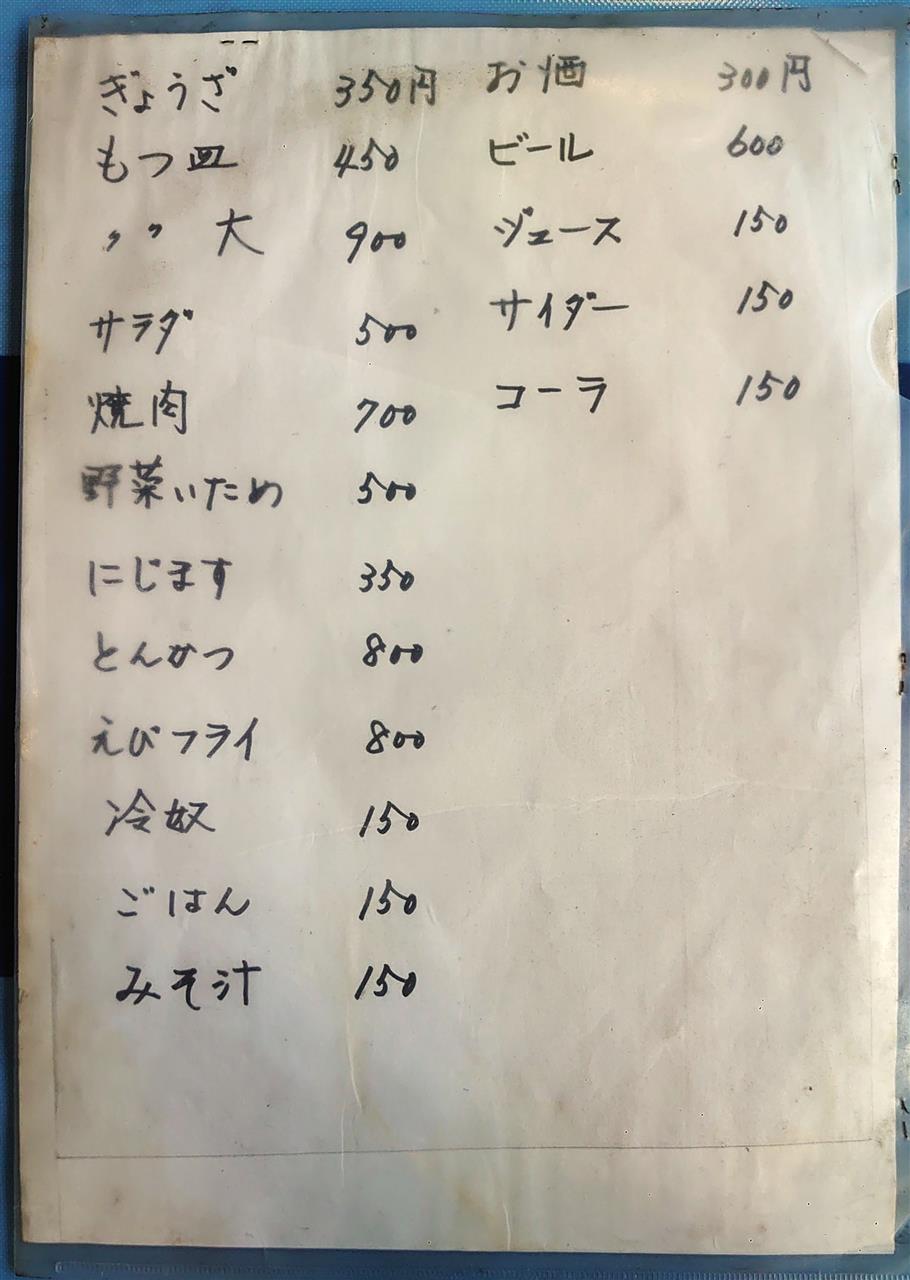 ぎょうざ 350円
もつ皿 450
〃 大 900
サラダ 500
焼肉 700
野菜いため 500
にじます 350
とんかつ 800
えびフライ 800
冷奴 150
ごはん 150
みそ汁 150
お酒 300円
ビール 600
ジュース 150
サイダー 150
コーラ 150